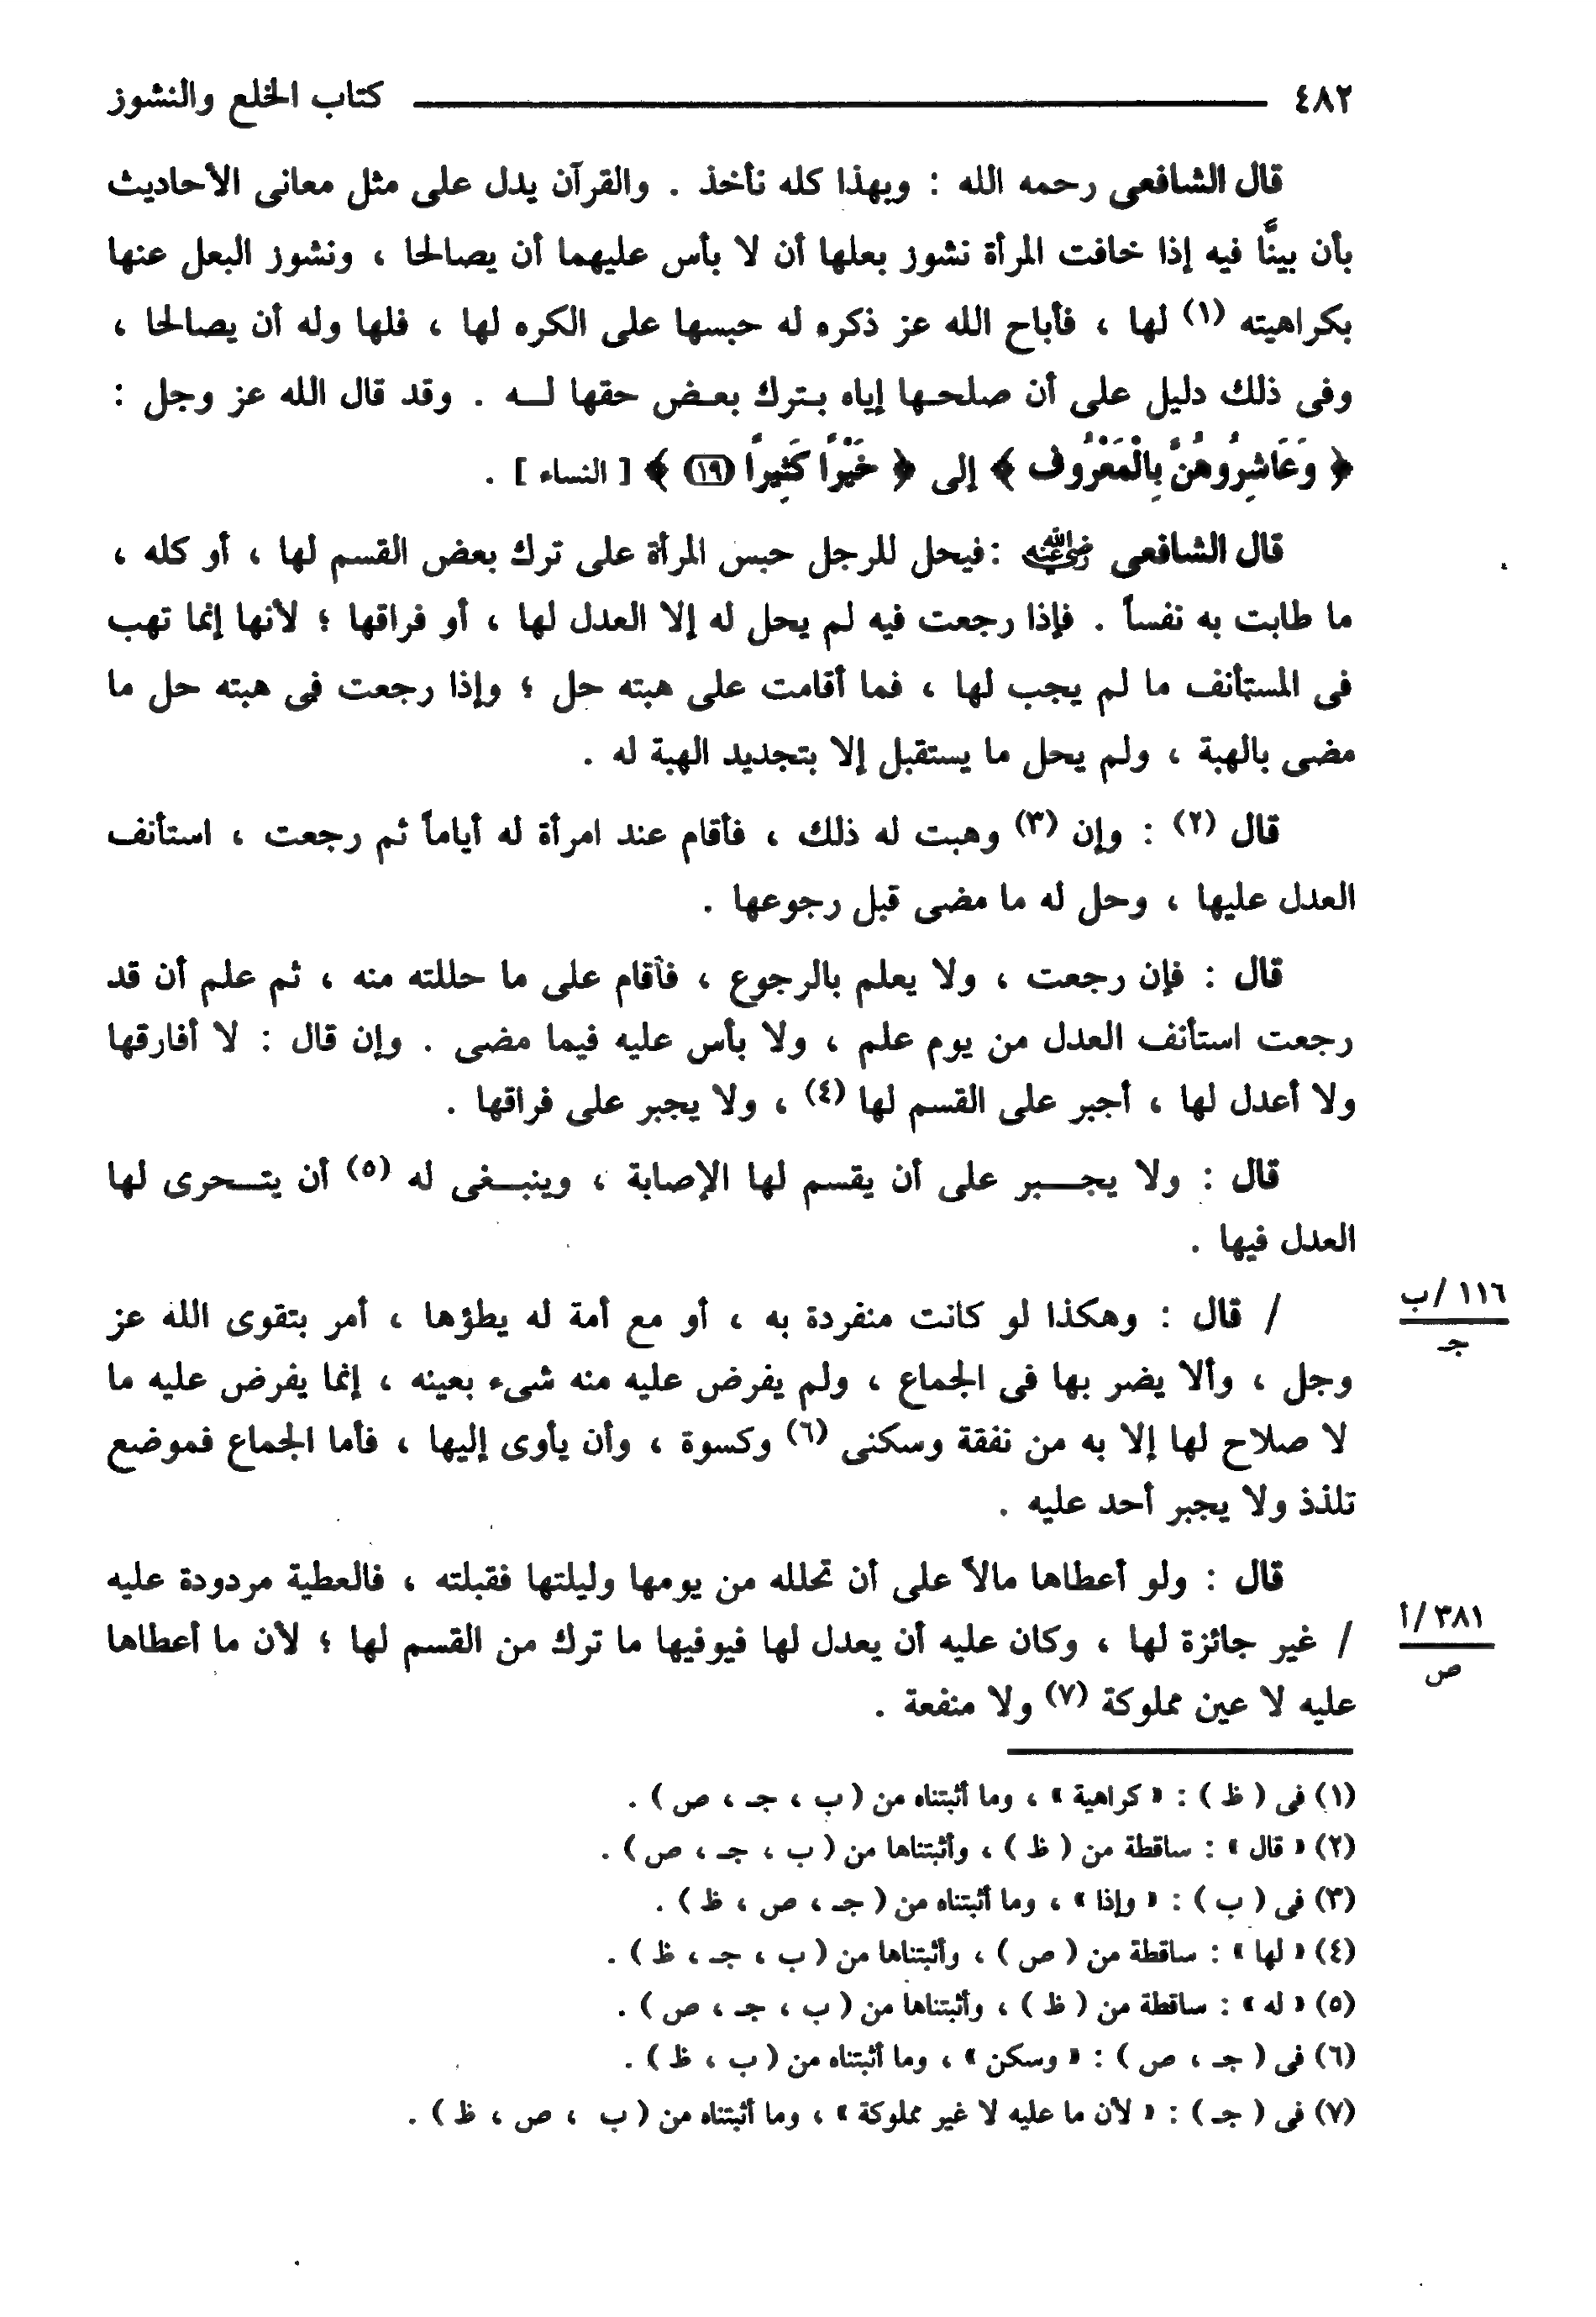 ٤٨٢ كتاب الخلع والنشوز
قال الشافعى رحمه الله : وبهذا كله نأخذ . والقرآن يدل على مثل معانى الأحاديث
بأن بينًّا فيه إذا خافت المرأة نشوز بعلها أن لا بأس عليهما أن يصالحا ، ونشوز البعل عنها
بكراهيته (١) لها ، فأباح الله عز ذكره له حبسها على الكره لها ، فلها وله أن يصالحا ،
وفى ذلك دليل على أن صلحـها إياه بـترك بعـض حقها لـــه . وقد قال الله عز وجل :
﴿ وَعَاشِرُوهُنَّ بِالْمَعْرُوف ﴾ إلى ﴿ خَيْرًا كَثِيرًا (١٩) ﴾ [ النساء ] .
قال الشافعى رضي الله عنه : فيحل للرجل حبس المرأة على ترك بعض القسم لها ، أو كله ،
ما طابت به نفساً . فإذا رجعت فيه لم يحل له إلا العدل لها ، أو فراقها ؛ لأنها إنما تهب
فى المستأنف ما لم يجب لها ، فما أقامت على هبته حل ؛ وإذا رجعت فى هبته حل ما
مضى بالهبة ، ولم يحل ما يستقبل إلا بتجديد الهبة له .
قال (٢) : وإن (٣) وهبت له ذلك ، فأقام عند امرأة له أياماً ثم رجعت ، استأنف
العدل عليها ، وحل له ما مضى قبل رجوعها .
قال : فإن رجعت ، ولا يعلم بالرجوع ، فأقام على ما حللته منه ، ثم علم أن قد
رجعت استأنف العدل من يوم علم ، ولا بأس عليه فيما مضى . وإن قال : لا أفارقها
ولا أعدل لها ، أجبر على القسم لها (٤) ، ولا يجبر على فراقها .
قال : ولا يجـــبر على أن يقسم لها الإصابة ، وينبــغى له (٥) أن يتــحرى لها
العدل فيها .
١١٦ /ب
جـ
/ قال : وهكذا لو كانت منفردة به ، أو مع أمة له يطؤها ، أمر بتقوى الله عز
وجل ، وألا يضر بها فى الجماع ، ولم يفرض عليه منه شىء بعينه ، إنما يفرض عليه ما
لا صلاح لها إلا به من نفقة وسكنى (٦) وكسوة ، وأن يأوى إليها ، فأما الجماع فموضع
تلذذ ولا يجبر أحد عليه .
قال : ولو أعطاها مالاً على أن تحلله من يومها وليلتها فقبلته ، فالعطية مردودة عليه
٣٨١ /أ
ص
/ غير جائزة لها ، وكان عليه أن يعدل لها فيوفيها ما ترك من القسم لها ؛ لأن ما أعطاها
عليه لا عين مملوكة (٧) ولا منفعة .
(١) فى ( ظ ) : « كراهية » ، وما أثبتناه من ( ب ، جـ ، ص ) .
(٢) « قال » : ساقطة من ( ظ ) ، وأثبتناها من ( ب ، جـ ، ص ) .
(٣) فى ( ب ) : « وإذا » ، وما أثبتناه من ( جـ ، ص ، ظ ) .
(٤) « لها » : ساقطة من ( ص ) ، وأثبتناها من ( ب ، جـ ، ظ ) .
(٥) « له » : ساقطة من ( ظ ) ، وأثبتناها من ( ب ، جـ ، ص ) .
(٦) فى ( جـ ، ص ) : « وسكن » ، وما أثبتناه من ( ب ، ظ ) .
(٧) فى ( جـ ) : « لأن ما عليه لا غير مملوكة » ، وما أثبتناه من ( ب ، ص ، ظ ) .